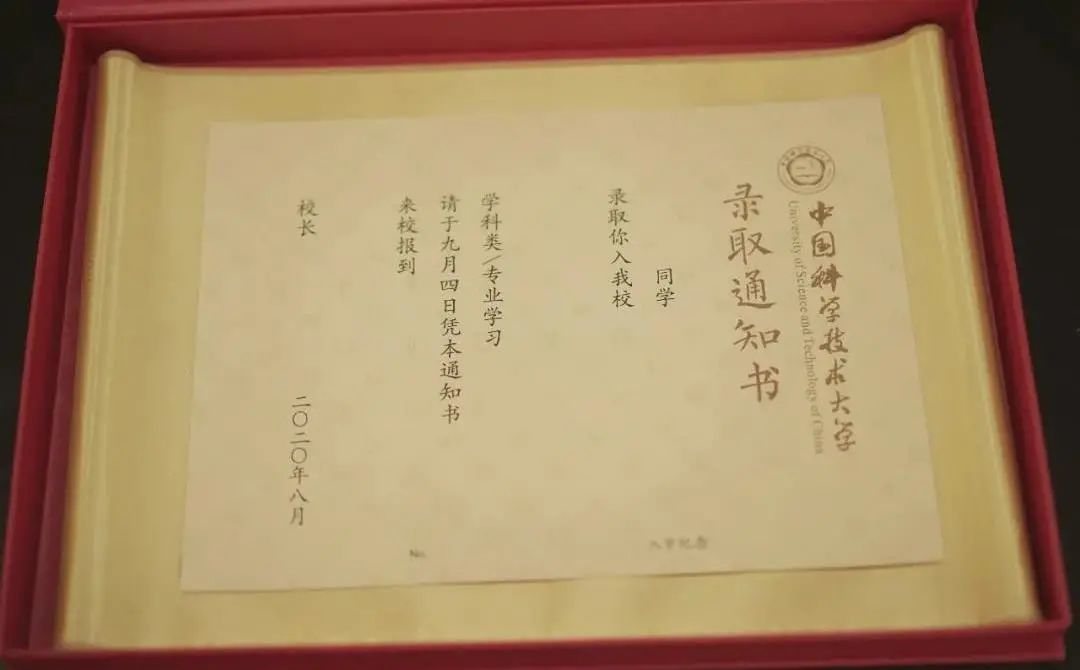 中国科学技术大学
University of Science and Technology of China
录取通知书
同学
录取你入我校
学科类/专业学习
请于九月四日凭本通知书
来校报到
校长
二〇二〇年八月
No.